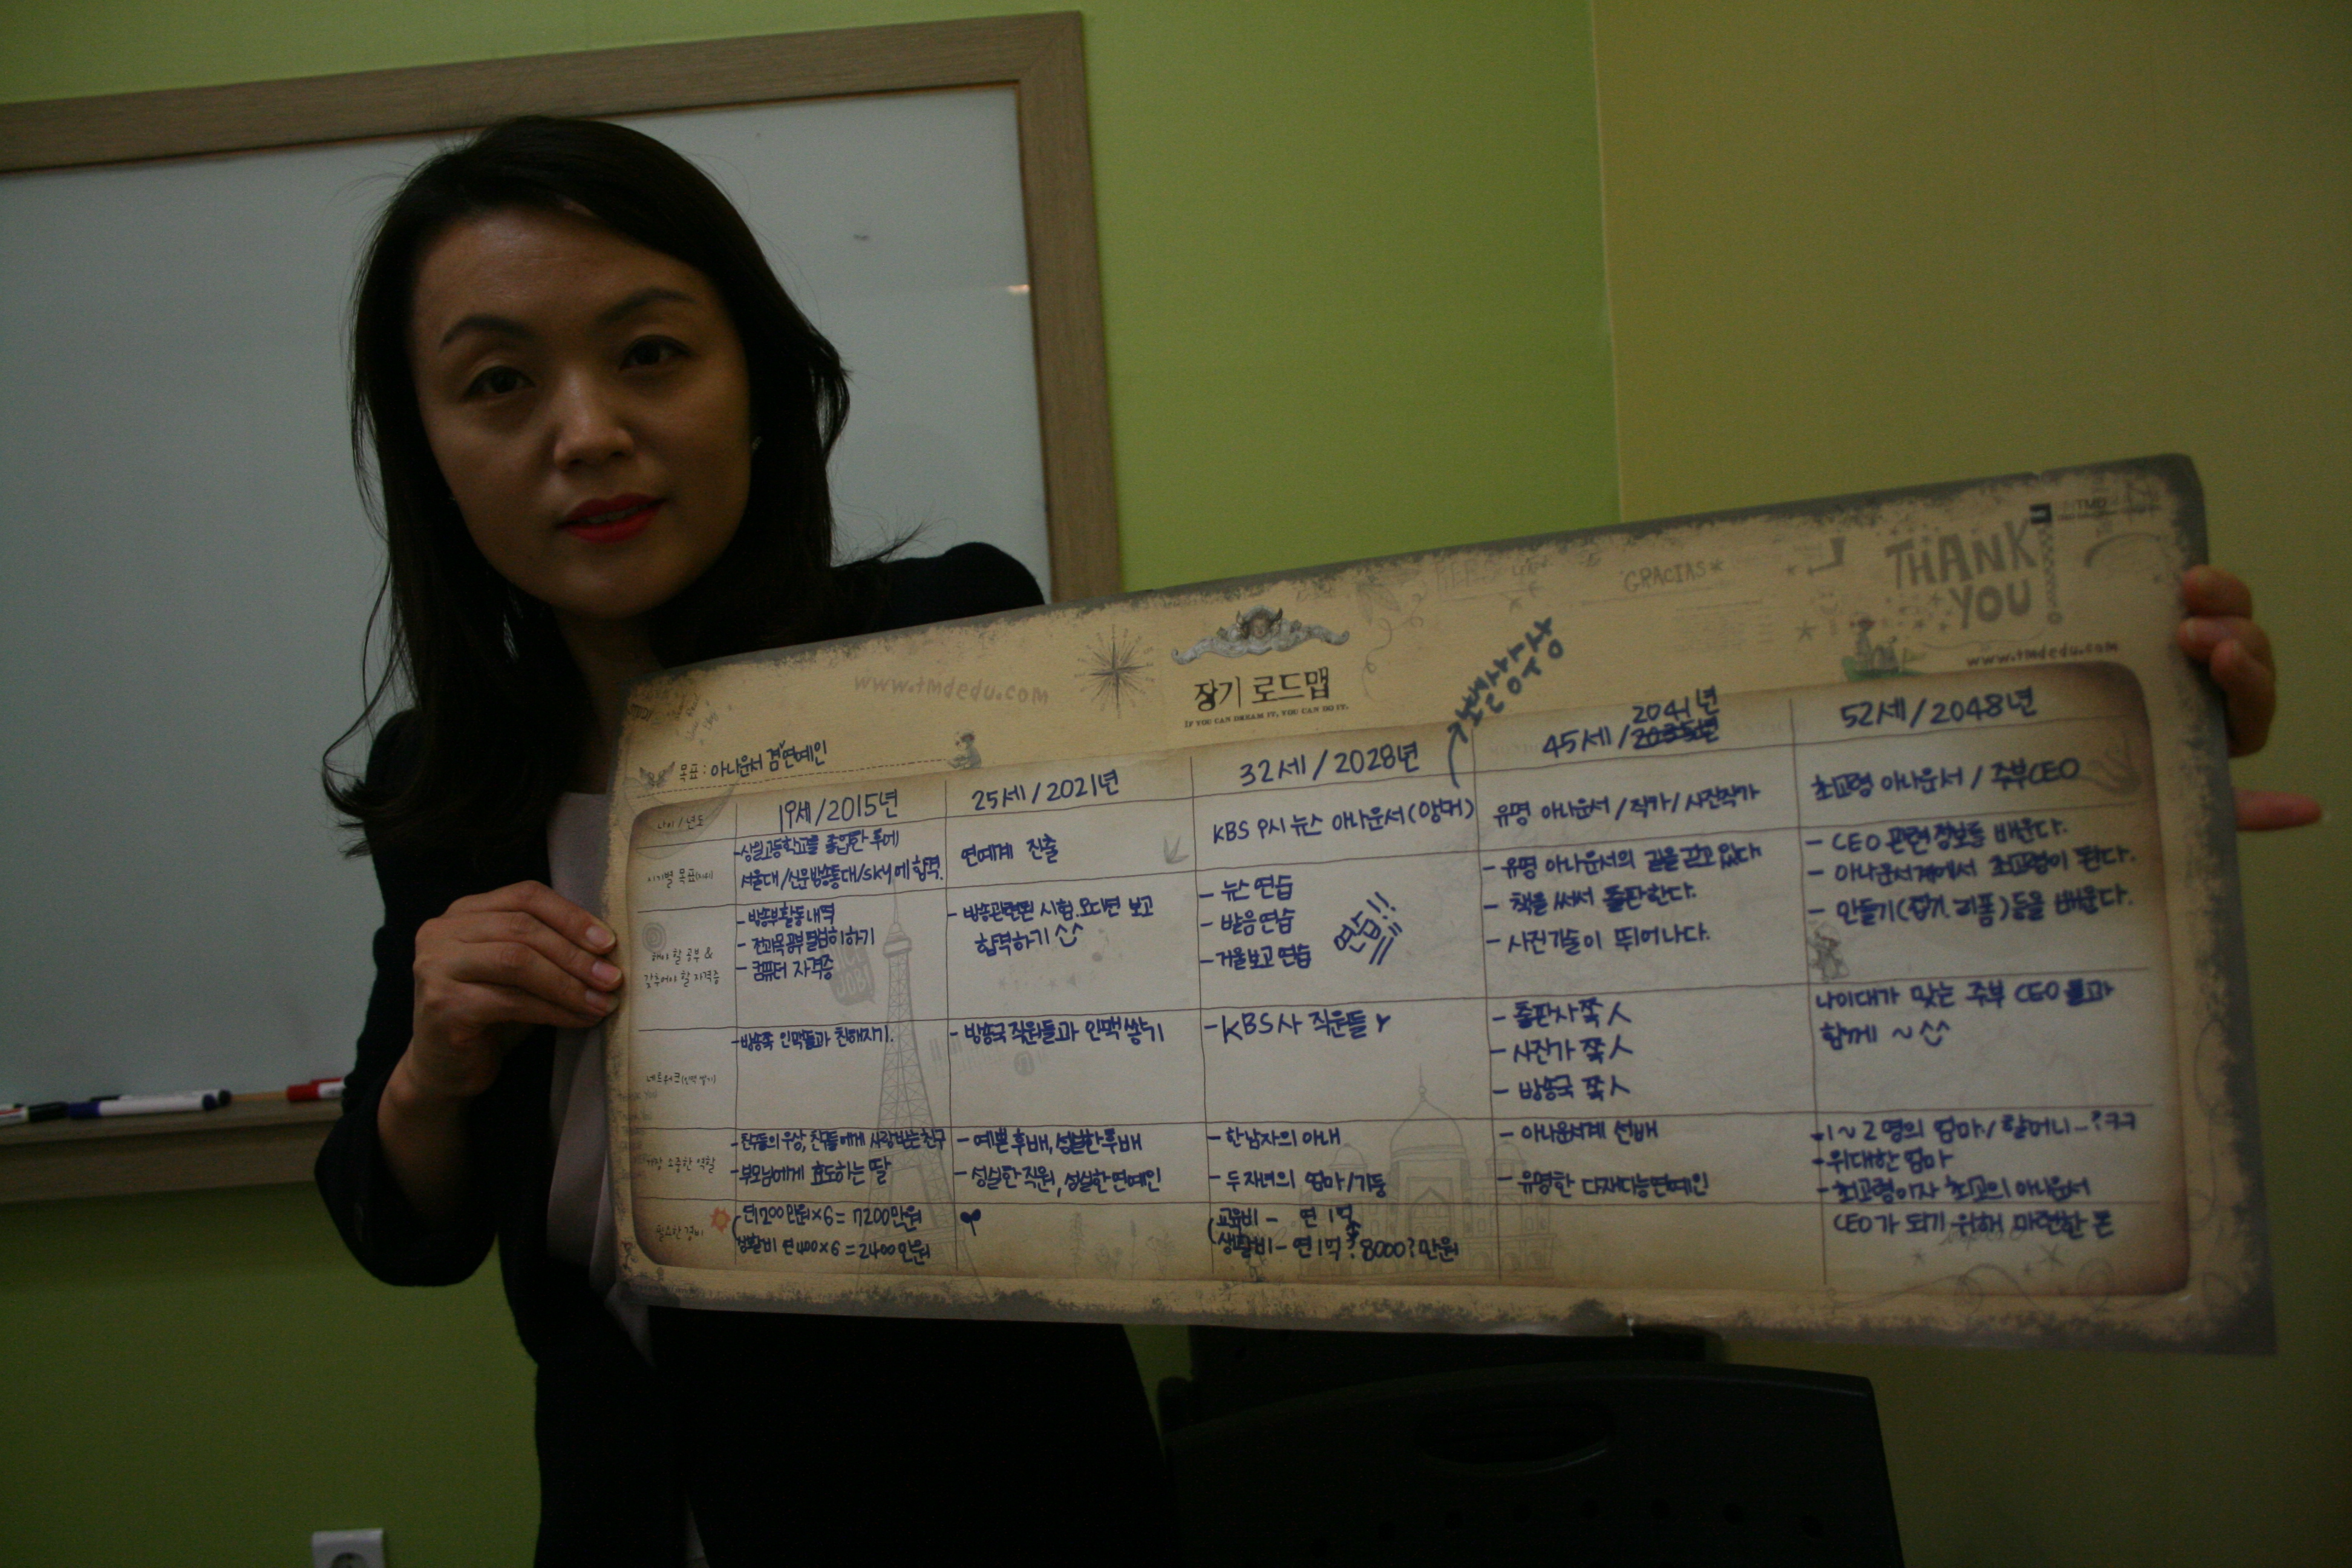 THANK
YOU
GRACIAS*
www.tmdedu.com
www.tmdedu.com
장기 로드맵
IF YOU CAN DREAM IT, YOU CAN DO IT.
목표 : 아나운서 겸 연예인
나이 / 년도
19세/2015년
25세/2021년
32세/2028년
45세/
2041년
52세/2048년
-상일고등학교를 졸업한 후에
서울대/신문방송통대/sky에 합격.
연예계 진출
KBS 9시 뉴스 아나운서(앵커)
유명 아나운서 / 작가 / 사진작가
초고령 아나운서 / 주부CEO
해야 할 공부 &
갖추어야 할 자격증
- 방송부활동내역
- 전과목공부열심히하기
- 컴퓨터 자격증
- 방송관련된 시험.오디션 보고
합격하기 ^^
- 뉴스 연습
- 발음연습
- 거울보고 연습
연습!!
- 유명 아나운서의 길을 걷고 있다.
- 책을 써서 출판한다.
- 사진기술이 뛰어나다.
- CEO 관련 정보들 배운다.
- 아나운서계에서 초고령이 된다.
- 만들기(접기, 리폼)등을 배운다.
-방송쪽 인맥들과 친해지기.
- 방송국 직원들과 인맥 쌓기
-KBS사 직원들
- 출판사쪽 人
- 사진가 쪽 人
- 방송국 쪽 人
나이대가 맞는 주부 CEO들과
함께 ~ ^^
가장 소중한 역할
-친구들의 우상, 친구들에게 사랑받는 친구
-부모님에게 효도하는 딸
- 예쁜 후배, 성실한 후배
- 성실한 직원, 성실한 연예인
- 한남자의 아내
- 두 자녀의 엄마/기둥
- 아나운서계 선배
- 유명한 다재다능연예인
-1~2명의 엄마 / 할머니~?ㅋㅋ
-위대한 엄마
-최고령이자 최고의 아나운서
필요한 경비
연1200만원×6=7200만원
생활비 연400×6=2400만원
교육비 - 연 1억
생활비 - 연1억? 8000?만원
CEO가 되기 위해 마련한 돈